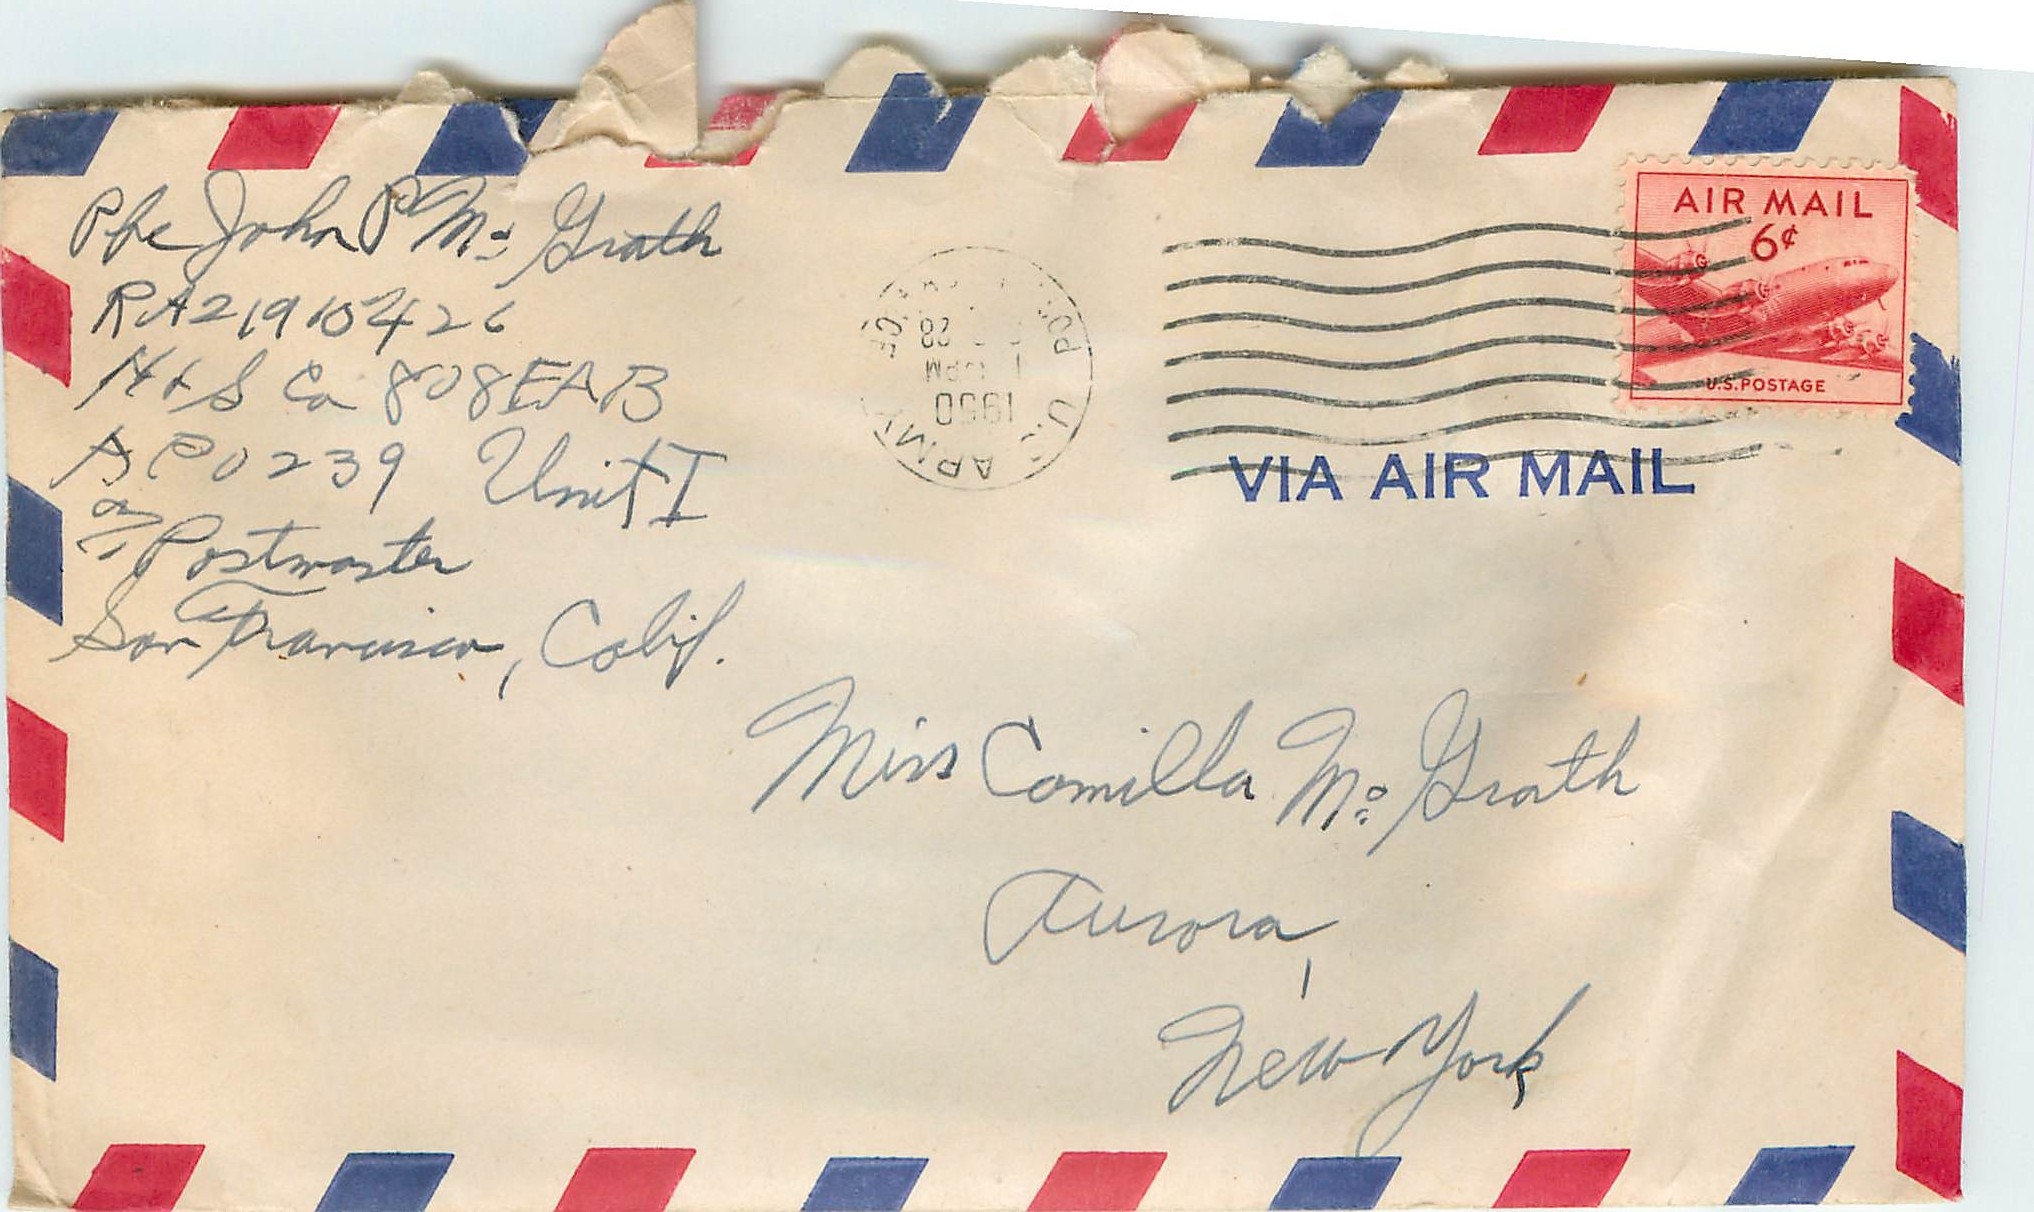 Pfc John P Mc Grath
RA21910426
H & S Co 808 EAB
APO 239 Unit I
c/o Postmaster
San Francisco, Calif.
U.S. ARMY
28
PM
1950
AIR MAIL
6¢
U.S. POSTAGE
VIA AIR MAIL
Miss Camilla Mc Grath
Aurora,
New York